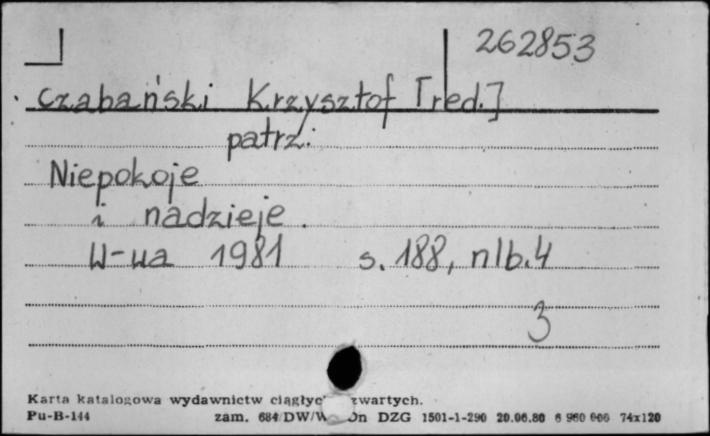 262853
Czabański Krzysztof [red.]
patrz:
Niepokoje
i nadzieje.
W-wa 1981 s. 188, nlb. 4
3
Karta katalogowa wydawnictw
Pu-B-144 zam. 684/DW/W DZG 1501-1-290 20.06.80 74x120